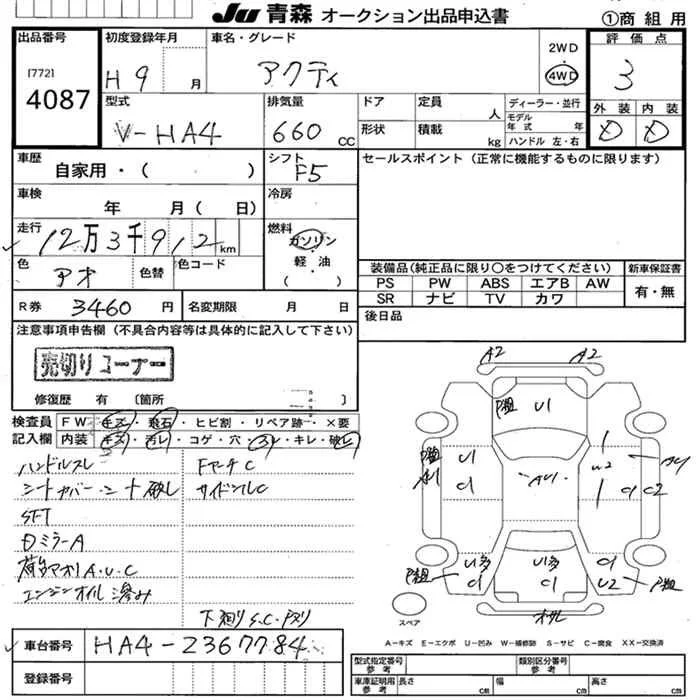 JU 青森 オークション出品申込書
①商組用
出品番号
[772]
4087
初度登録年月
H9 月
車名・グレード
アクティ
2WD
4WD
評価点
3
型式
V-HA4
排気量
660 cc
ドア
形状
定員 人
積載 kg
ディーラー・並行
モデル年式 年
ハンドル 左・右
外装 内装
D D
車歴
自家用・( )
シフト
F5
セールスポイント(正常に機能するものに限ります)
車検
年 月( 日)
冷房
走行
12万3千912 km
燃料
ガソリン
軽・油
( )
色
アオ
色替
色コード
装備品(純正品に限り○をつけてください)
新車保証書
PS PW ABS エアB AW
SR ナビ TV カワ
有・無
R券 3460 円
名変期限 月 日
後日品
注意事項申告欄(不具合内容等は具体的に記入して下さい)
売切りコーナー
修復歴 有 〔箇所 〕
検査員記入欄
FW キズ・飛石・ヒビ割・リペア跡・×要
内装 キズ・汚レ・コゲ・穴・スレ・キレ・破レ
ハンドルスレ
シートカバー・シート破レ
SFT
Dミラー A
荷台アオリ A.U.C
エンジンオイル滲み
FアーチC
サイドシルC
下廻りS.C.
A2 A2
U1
U1
C1
AU1
U2
C1 C2
U1多
C1
U1多
C1
C1
U2
スペア
A-キズ E-エクボ U-凹み W-補修跡 S-サビ C-腐食 XX-交換済
車台番号
HA4-2367784
登録番号
型式指定番号 参考
類別区分番号 参考
車庫証明用 参考
長さ cm
幅 cm
高さ cm